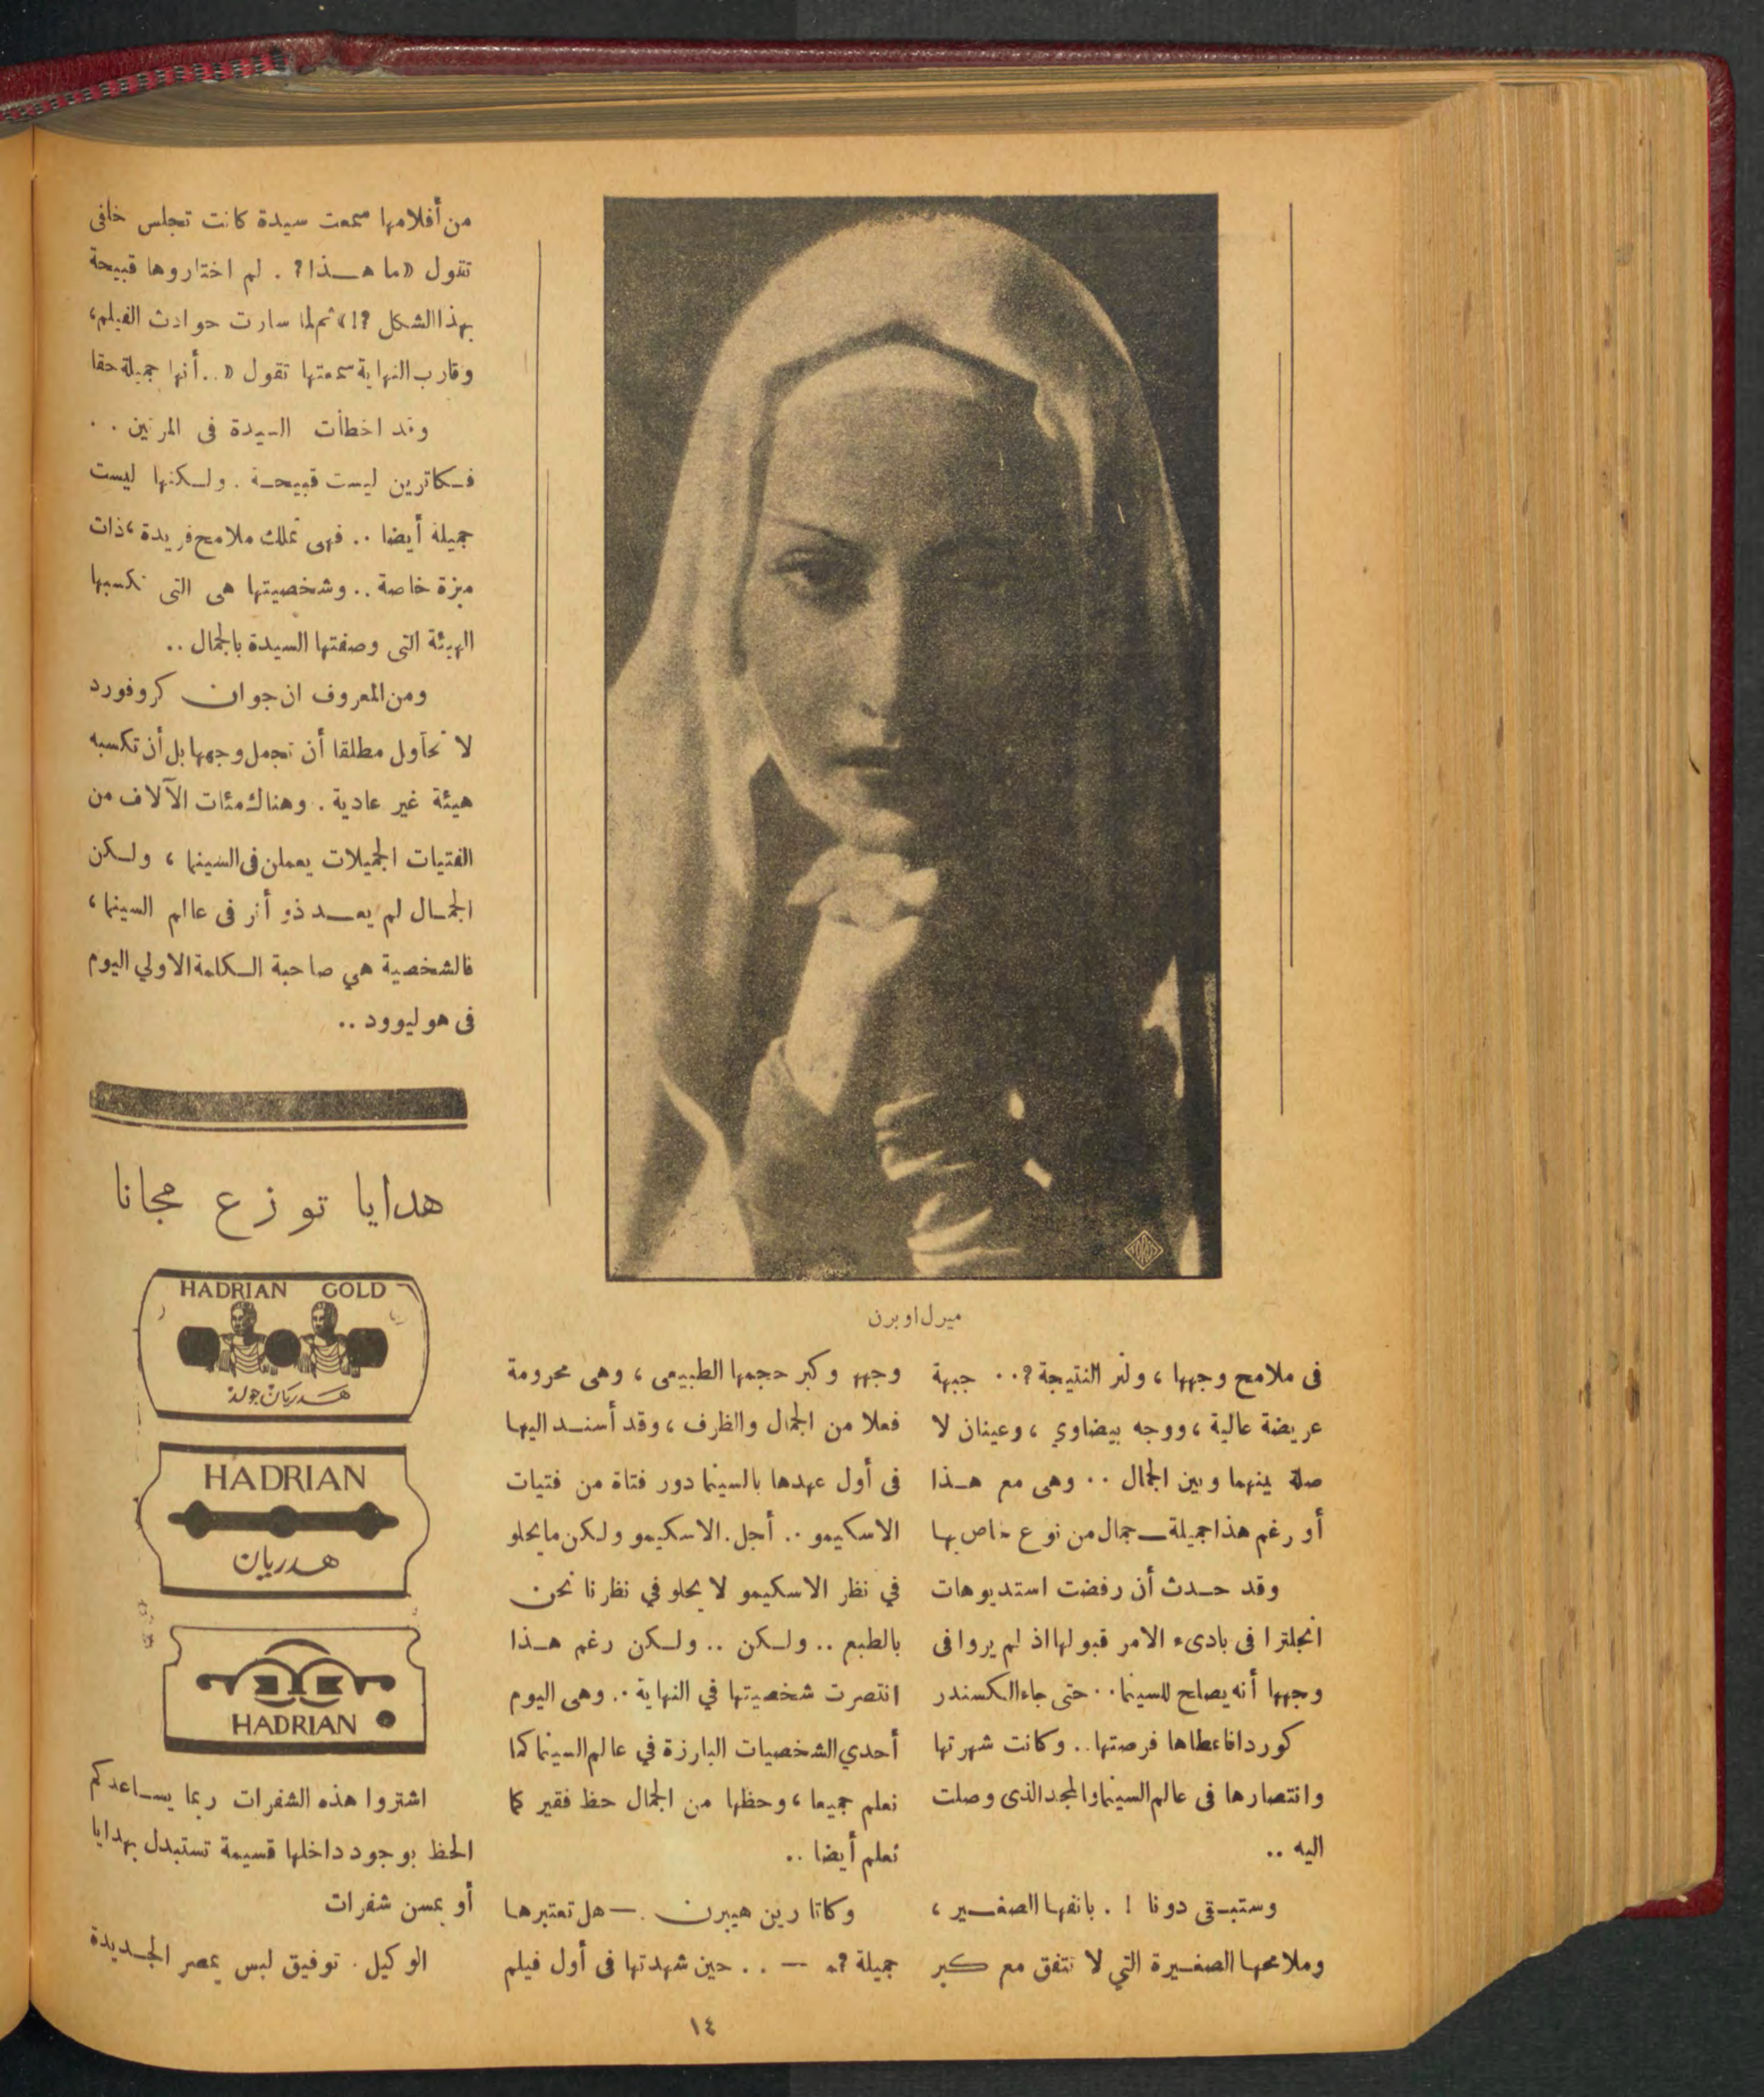 ميرل اوبرن
فى ملامح وجهها ، ولنر النتيجة ؟ . . جبهة
عريضة عالية ، ووجه بيضاوي ، وعينان لا
صلة بينهما وبين الجمال . . وهى مع هـذا
أو رغم هذا جميلة ـ جمال من نوع خاص بها
وقد حـدث أن رفضت استديوهات
انجلترا فى بادىء الامر قبولها اذ لم يروا فى
وجهها أنه يصلح للسينما . . حتى جاء الكسندر
كوردا فاعطاها فرصتها . . وكانت شهرتها
وانتصارها فى عالم السينما والمجد الذى وصلت
اليه . .
وستبـقى دونا ! . بانفها الصغـير ،
وملامحها الصغـيرة التي لا تتفق مع كبر
وجهها وكبر حجمها الطبيعى ، وهى محرومة
فعلا من الجمال والظرف ، وقد أسنـد اليها
فى أول عهدها بالسينما دور فتاة من فتيات
الاسكيمو . . أجل . الاسكيمو ولكن ما يحلو
في نظر الاسكيمو لا يحلو في نظرنا نحن
بالطبع . . ولـكن . . ولـكن رغم هـذا
انتصرت شخصيتها في النهاية . . وهى اليوم
أحدي الشخصيات البارزة في عالم السينما كما
نعلم جميعا ، وحظها من الجمال حظ فقير كما
نعلم أيضا . .
وكاتارين هيبرن . — هل تعتبرها
جميلة ؟ — . . حين شهدتها فى أول فيلم
من أفلامها سمعت سيدة كانت تجلس خلفى
تقول « ما هـذا ؟ . لم اختاروها قبيحة
بهذا الشكل ؟! » ثم لما سارت حوادث الفيلم ،
وقارب النهاية سمعتها تقول « . . أنها جميلة حقا
وقد اخطأت السيدة فى المرتين . .
فـكاترين ليست قبيحـة . ولـكنها ليست
جميلة أيضا . . فهى تملك ملامح فريدة ، ذات
ميزة خاصة . . وشخصيتها هى التى تكسبها
الهيئة التى وصفتها السيدة بالجمال . .
ومن المعروف ان جوان كروفورد
لا تحاول مطلقا أن تجمل وجهها بل أن تكسبه
هيئة غير عادية . وهناك مئات الآلاف من
الفتيات الجميلات يعملن فى السينما ، ولـكن
الجمـال لم يعـد ذو أثر فى عالم السينما ،
فالشخصية هي صاحبة الـكلمة الاولي اليوم
فى هوليوود . .
هدايا توزع مجانا
HADRIAN GOLD
هـدريان جولد
HADRIAN
هـدريان
HADRIAN
اشتروا هذه الشفرات ربما يسـاعدكم
الحظ بوجود داخلها قسيمة تستبدل بهدايا
أو بمسن شفرات
الوكيل . توفيق لبس بمصر الجـديدة
١٤